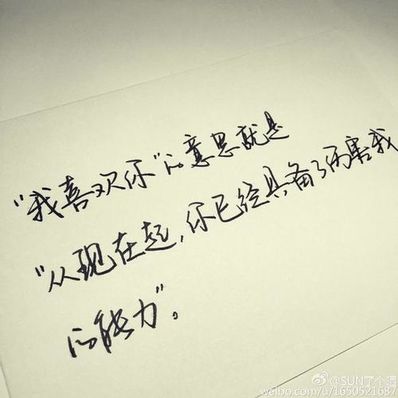 “我喜欢你”的意思就是
“从现在起,你已经具备了伤害我
的能力”。
@SUN了个酒
weibo.com/u/1650521687